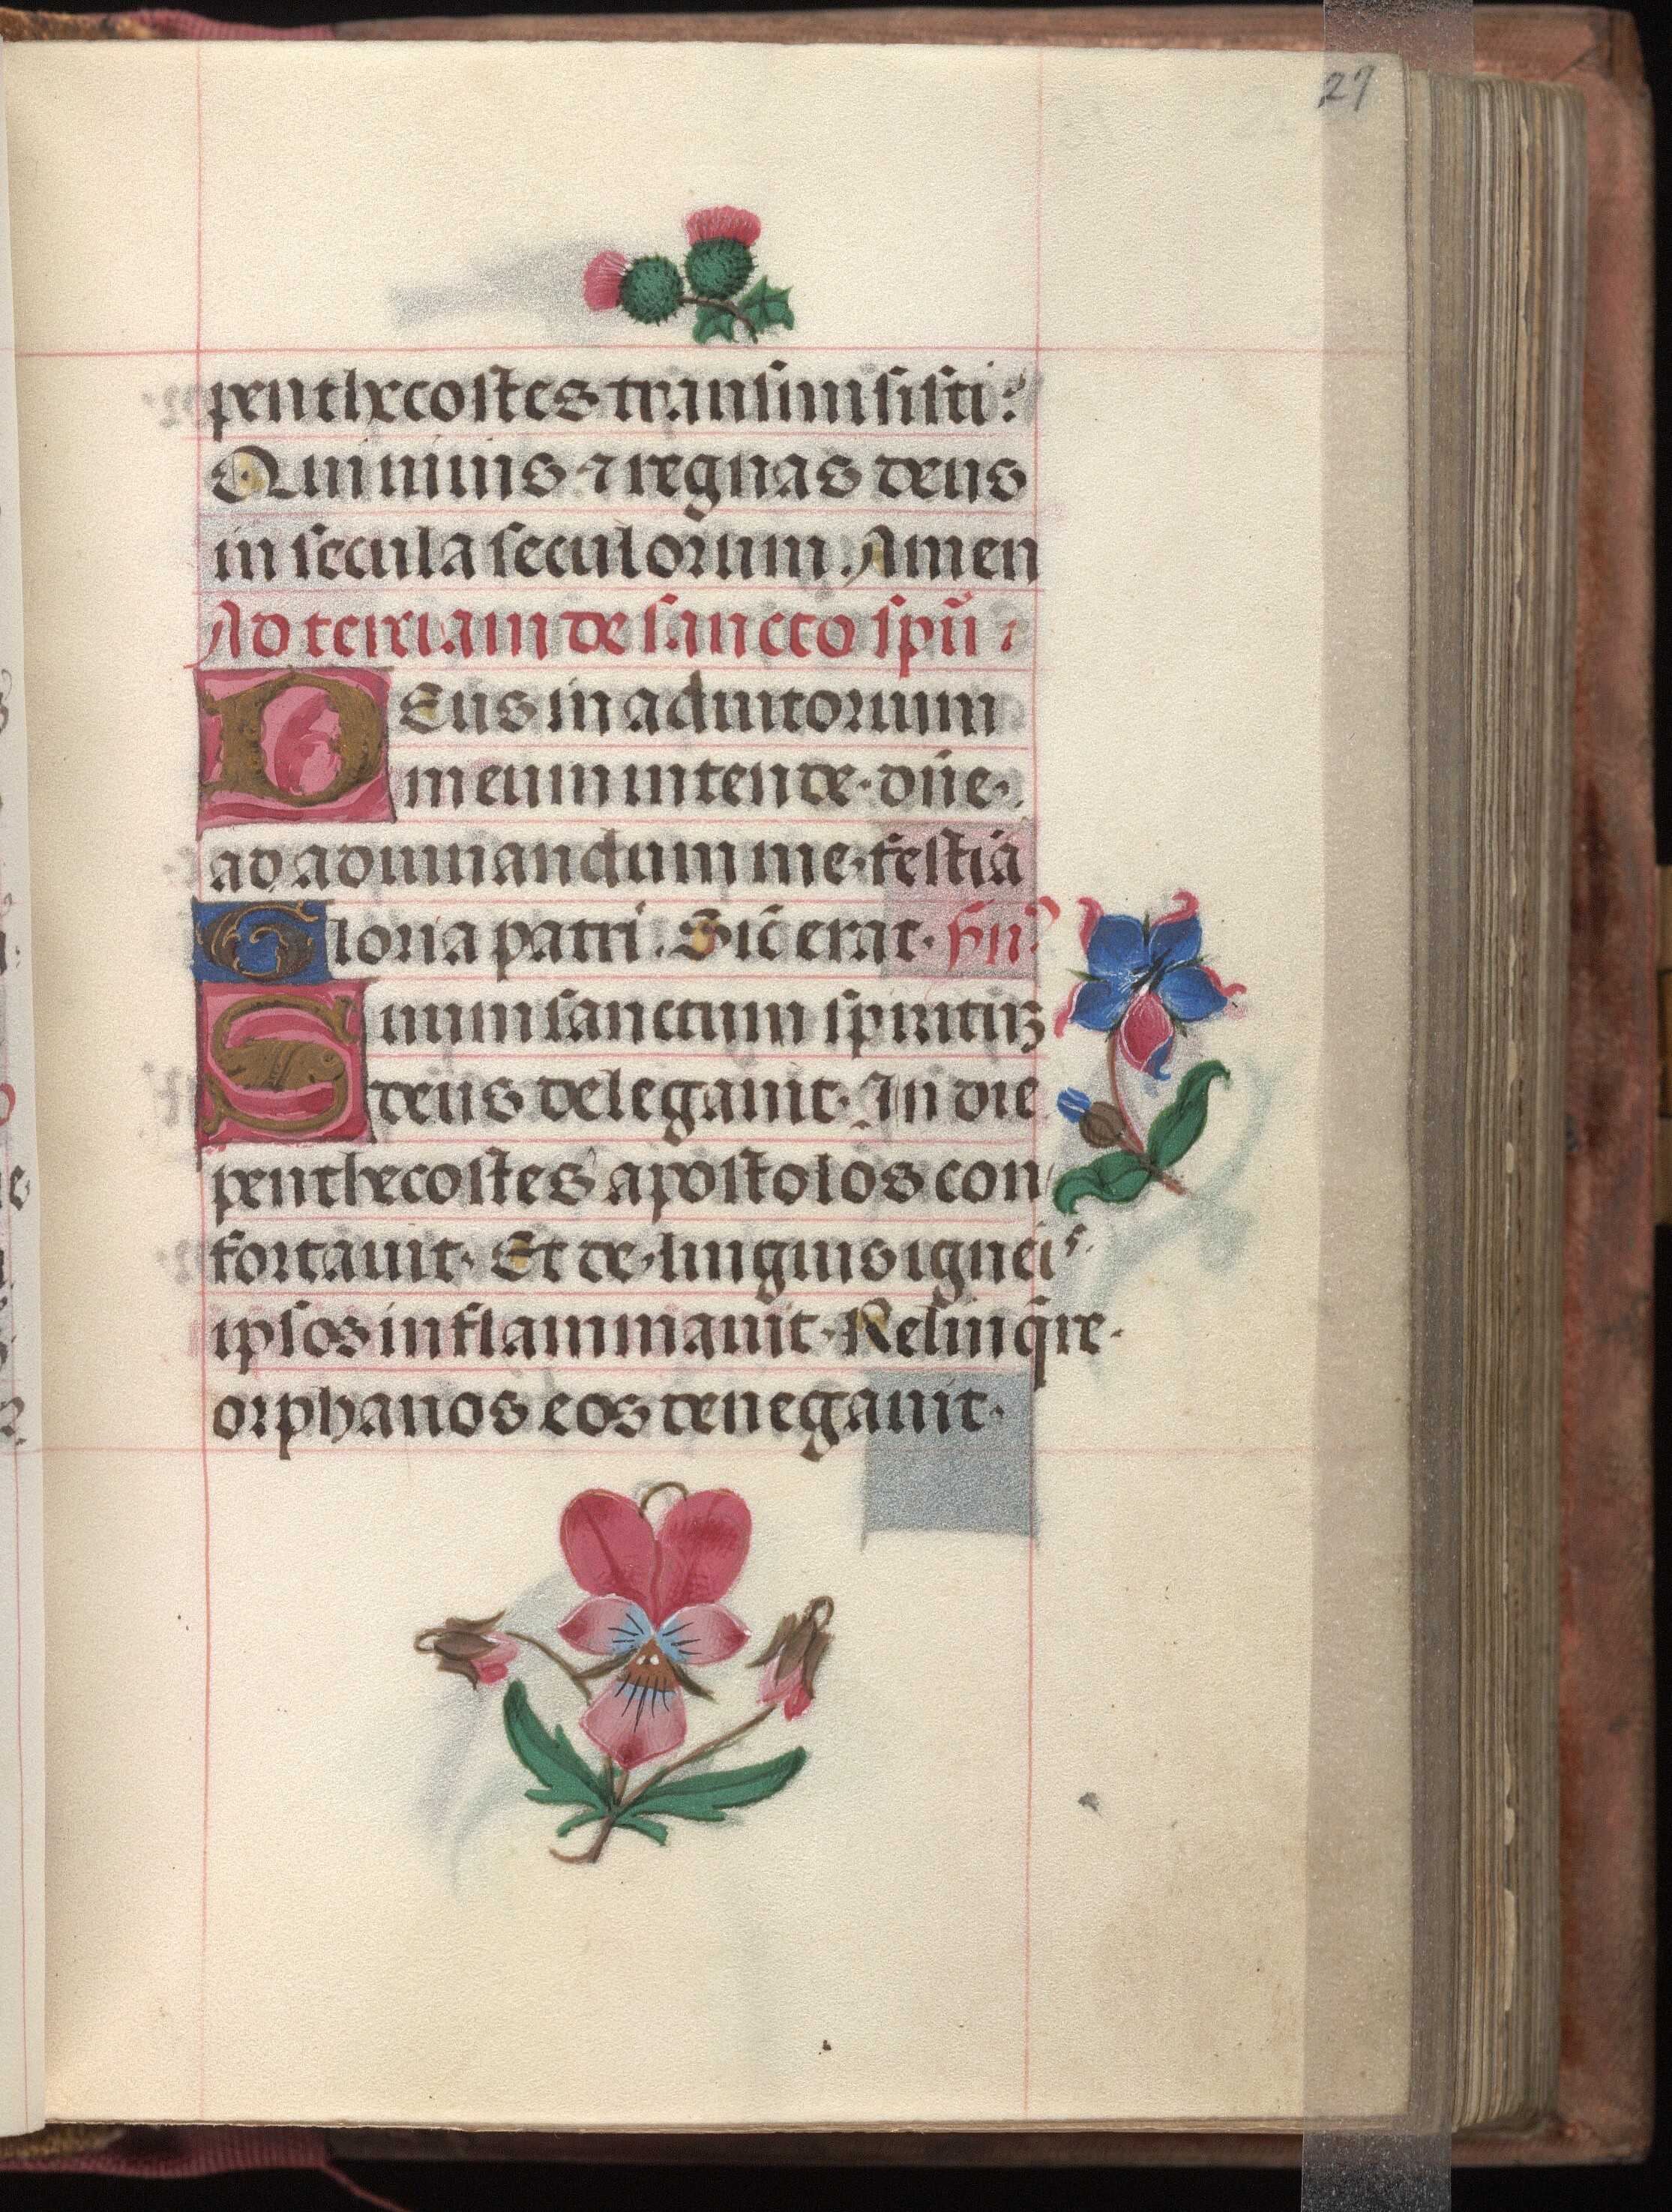 27
penthecostes transmisisti?
Qui viuis ⁊ regnas deus
in secula seculorum. Amen
Ad terciam de sancto spū
DEus in adiutorium
meum intende. dn̄e.
ad adiuuandum me festiā
Gloria patri. Sic̄ erat. hn̄?
Suum sanctum spirituꝫ
deus delegauit. In die
penthecostes apostolos con
fortauit. Et de linguis igneis.
ipsos inflammauit. Relinq̄re.
orphanos eos denegauit.